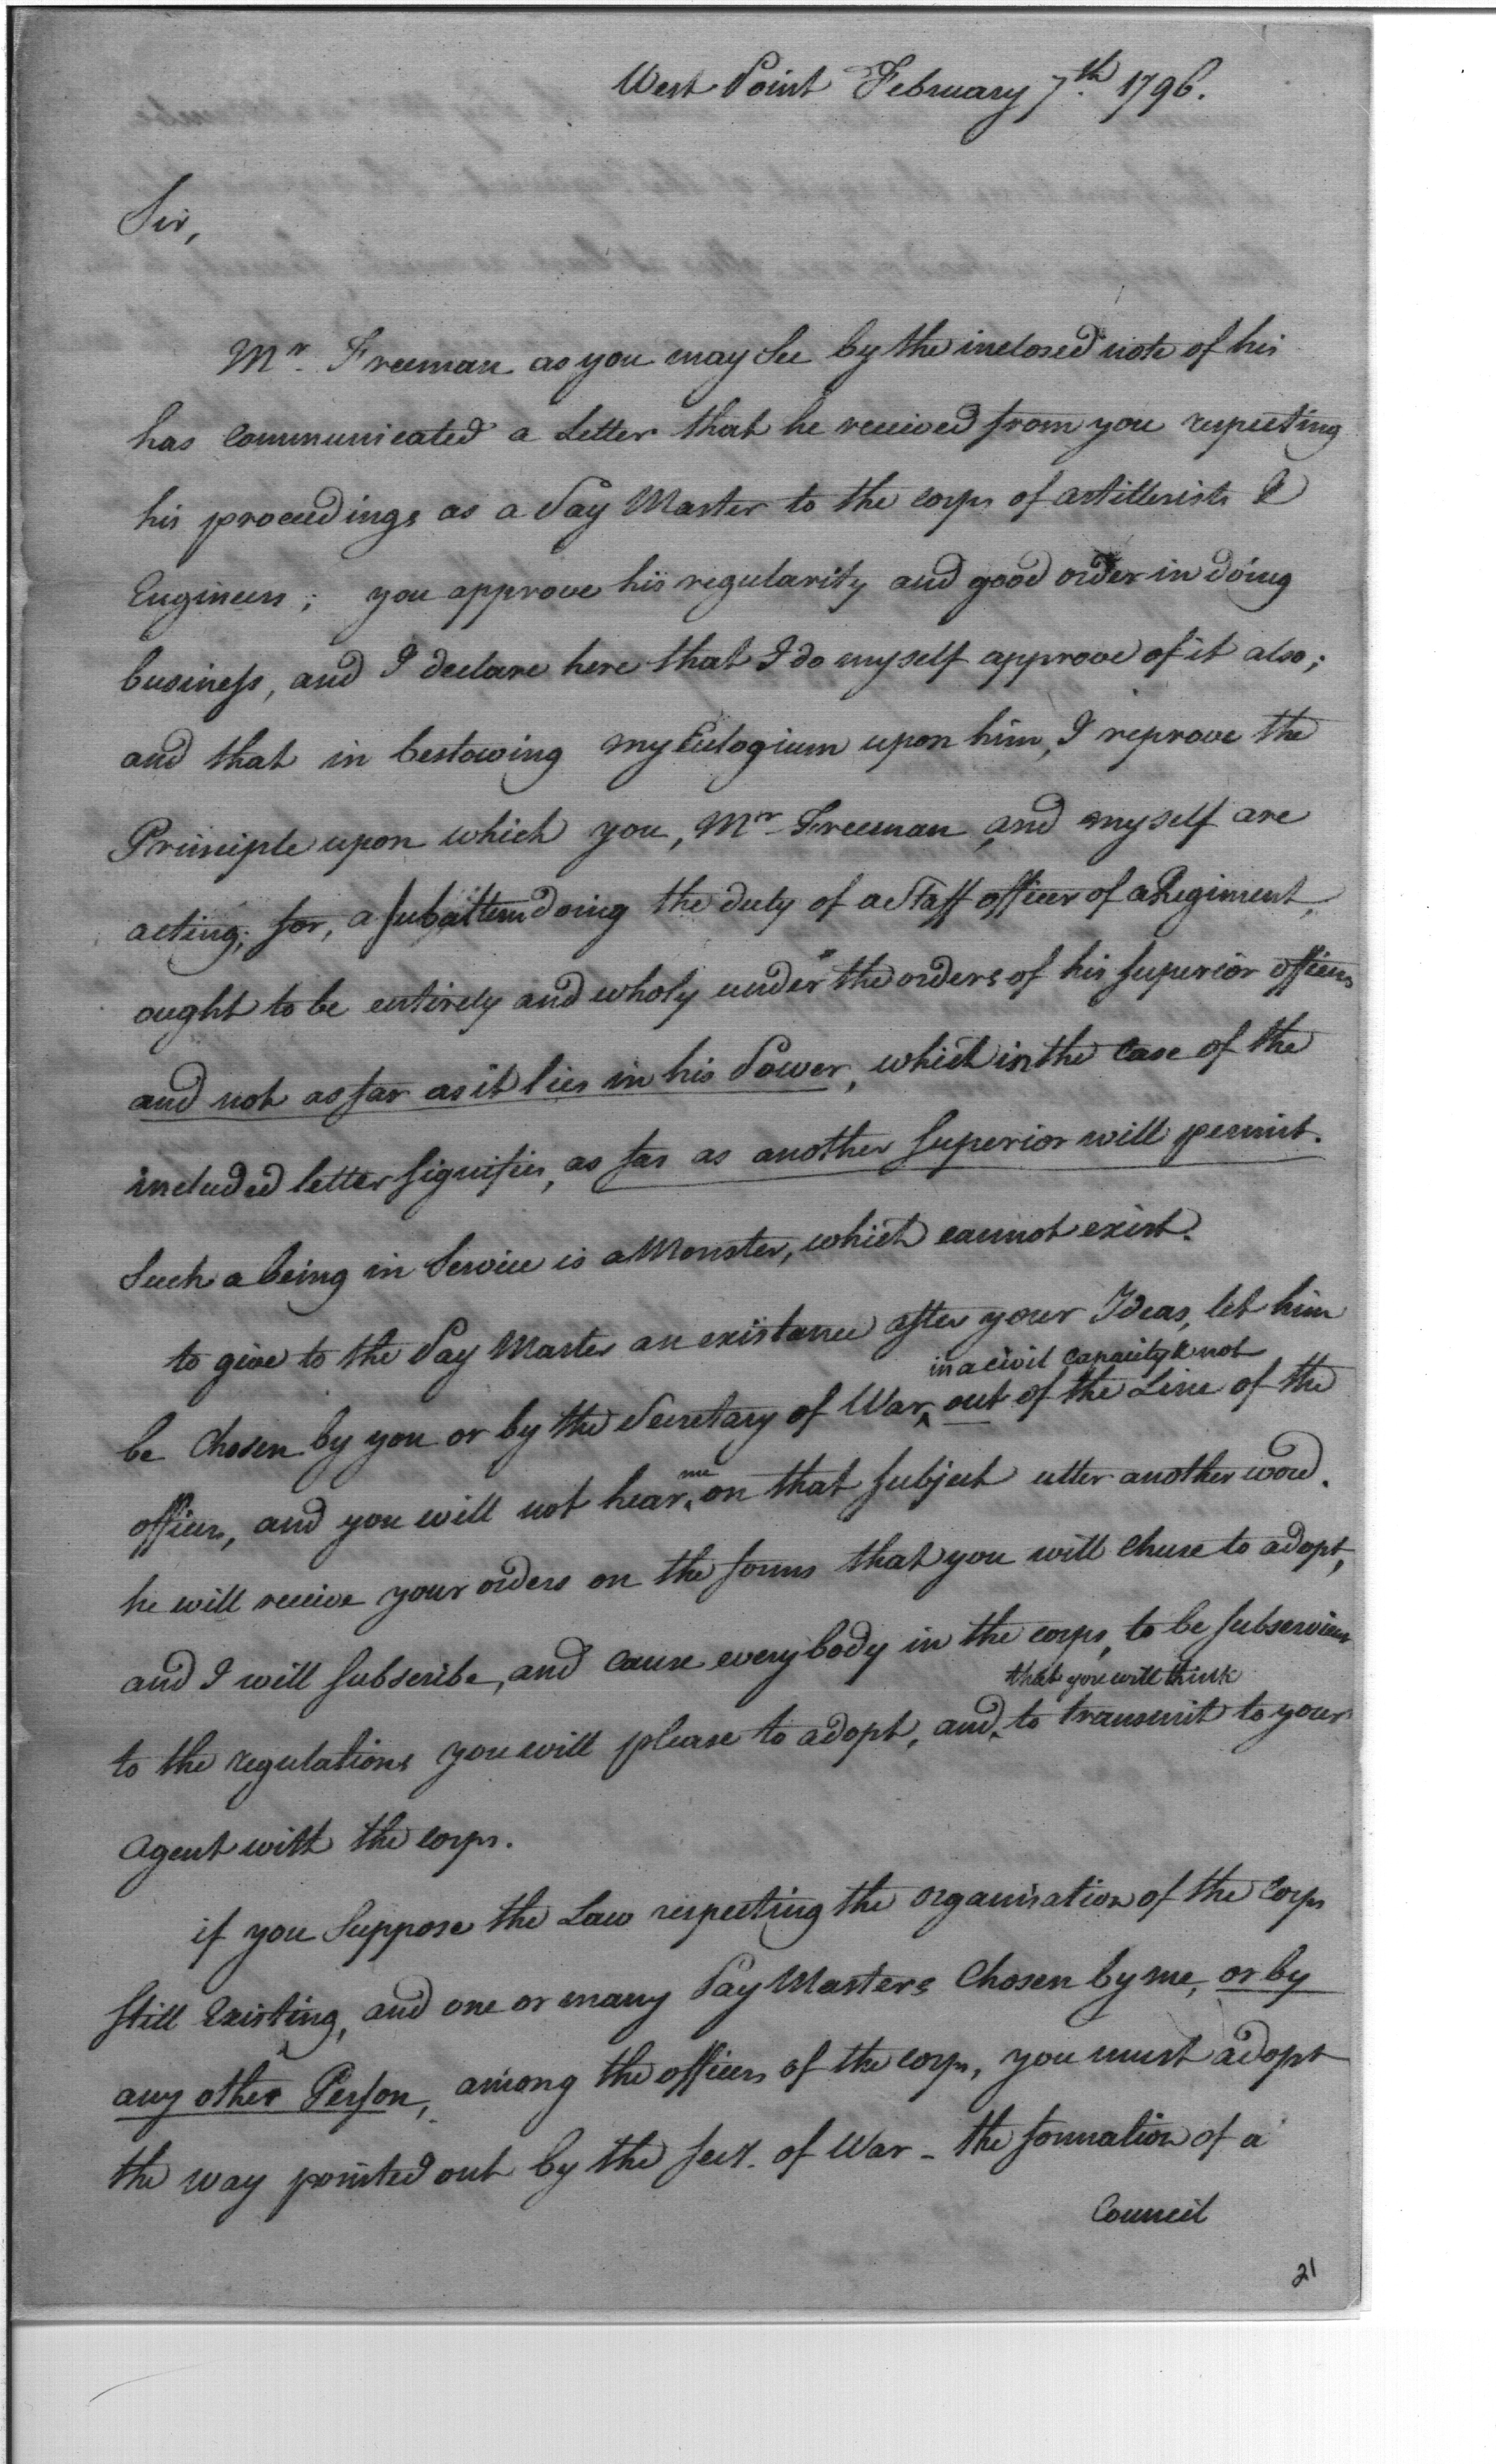 West Point February 7th. 1796.
Sir,
Mr. Freeman as you may See by the inclosed note of his
has communicated a Letter that he received from you respecting
his proceedings as a Pay Master to the corps of artillerists &
Engineers; you approve his regularity and good order in doing
business, and I declare here that I do myself approve of it also;
and that in bestowing my Eulogium upon him, I reprove the
Principle upon which you, Mr. Freeman, and myself are
acting; for, a subaltern doing the duty of a Staff officer of a Regiment,
ought to be entirely and wholy under the orders of his superior officers
and not as far as it lies in his Power, which in the Case of the
included letter signifies, as far as another superior will permit.
Such a being in Service is a Monster, which cannot exist.
to give to the Pay Master an existance after your Ideas, let him
in a civil capacity & not
be Chosen by you or by the Secretary of War, out of the Line of the
me
officers, and you will not hear on that subject utter another word.
he will receive your orders on the forms that you will Chuse to adopt,
and I will subscribe, and cause every body in the corps, to be subservient
that you will think
to the regulations you will please to adopt, and to transmit to your
Agent with the corps.
if you Suppose the Law respecting the organisation of the Corps
still Existing, and one or many Pay Masters Chosen by me, or by
any other Person, among the officers of the corps, you must adopt
the way pointed out by the secy. of War - the formation of a
Council
21